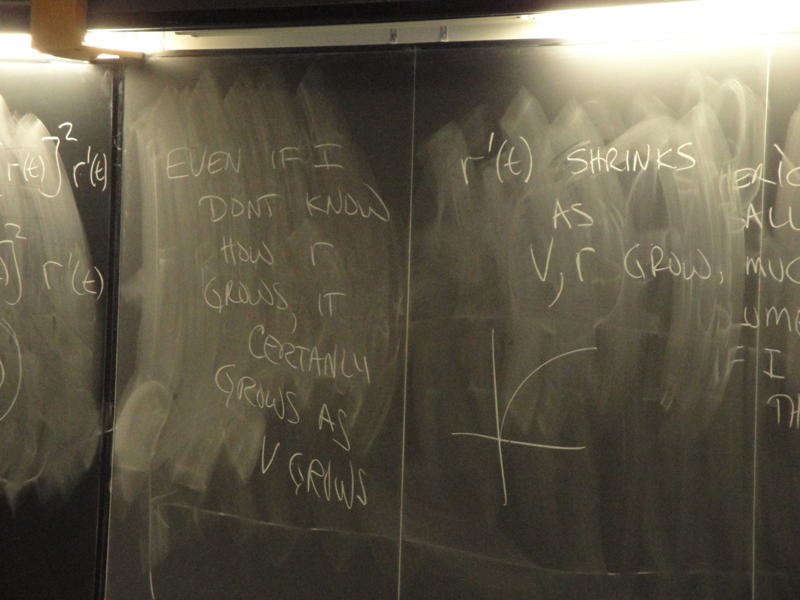 r(t)]² r'(t)
]² r'(t)
)
EVEN IF I
DONT KNOW
HOW r
GROWS, IT
CERTANLY
GROWS AS
V GROWS
r'(t) SHRINKS
AS
V, r GROW,
ERIC
BALL
MUC
LUME
IF I
TH